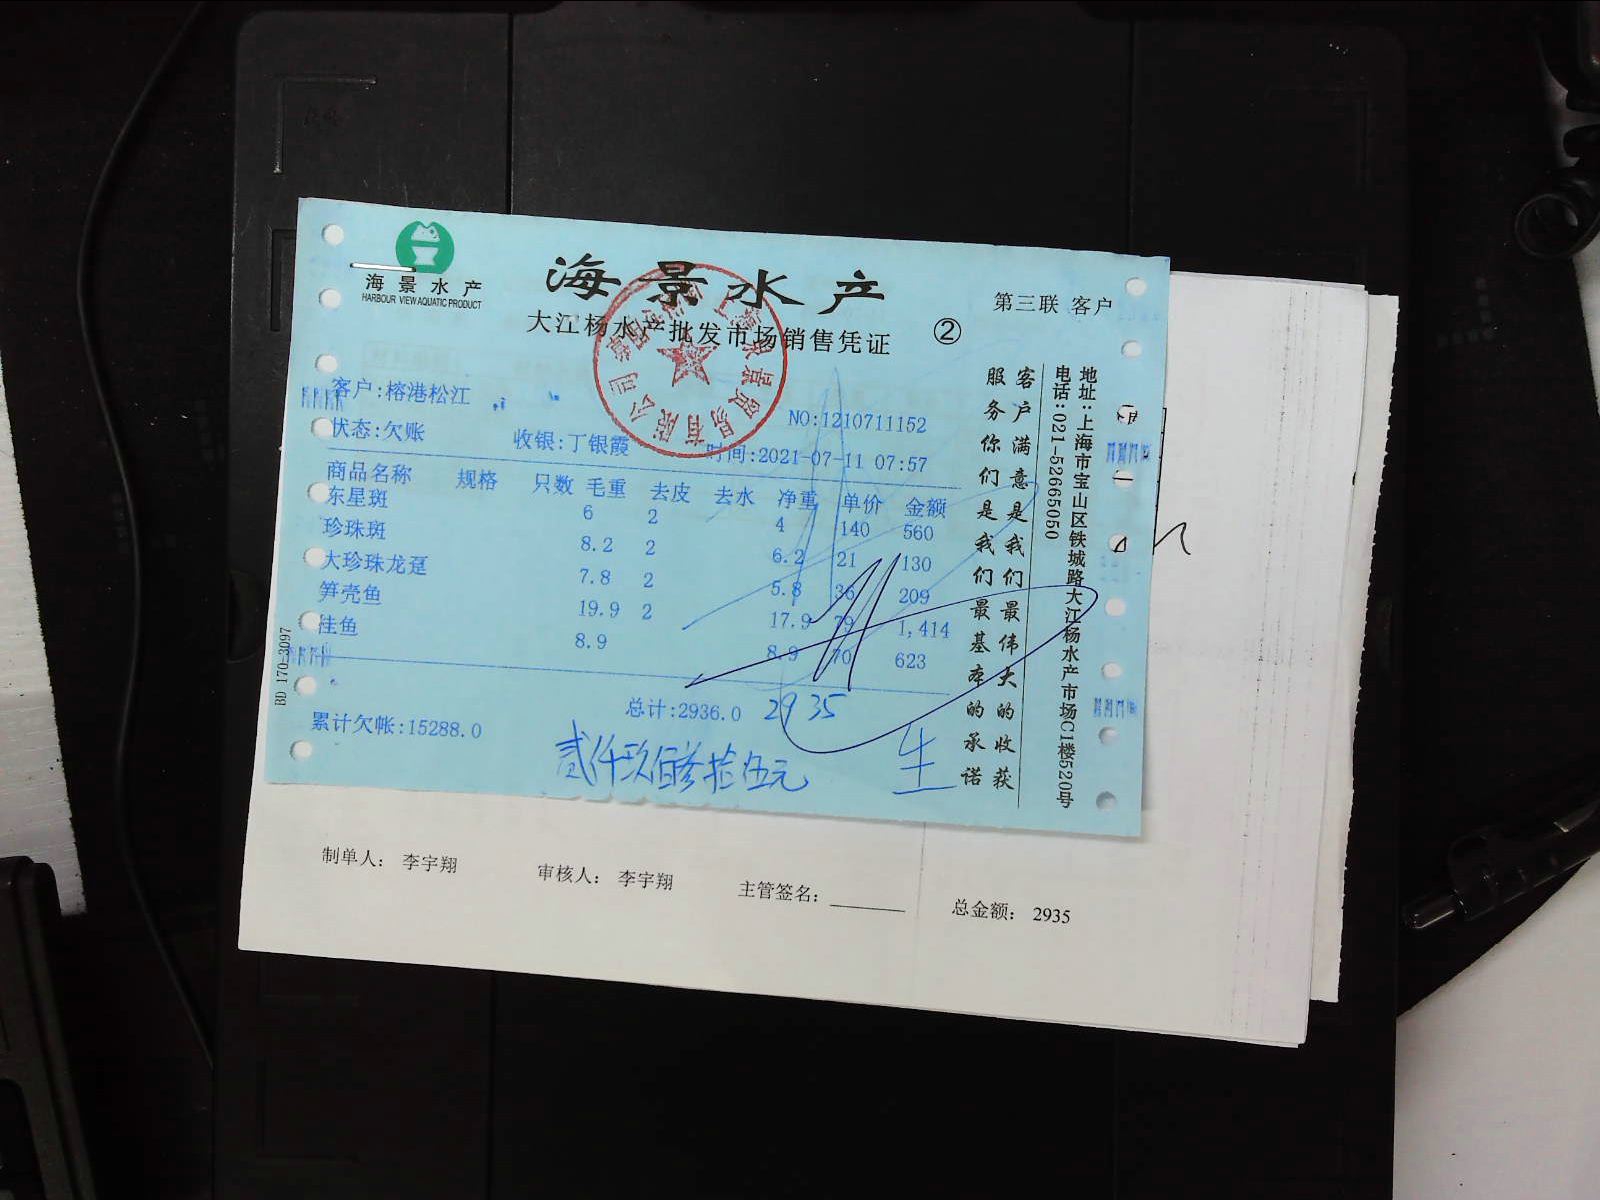 海景水产
HARBOUR VIEW AQUATIC PRODUCT
海景水产
大江杨水产批发市场销售凭证
②
第三联 客户
客户:榕港松江
NO:1210711152
状态:欠账 收银:丁银霞 时间:2021-07-11 07:57
商品名称 规格 只数 毛重 去皮 去水 净重 单价 金额
东星斑 6 2 4 140 560
珍珠斑 8.2 2 6.2 21 130
大珍珠龙趸 7.8 2 5.8 36 209
笋壳鱼 19.9 2 17.9 79 1,414
佳鱼 8.9 8.9 70 623
总计:2936.0 2935
累计欠帐:15288.0
贰仟玖佰叁拾伍元
生
客户满意是我们最伟大的收获
服务你们是我们最基本的承诺
地址:上海市宝山区铁城路大江杨水产市场C1楼520号
电话:021-52665050
BD 170-3097
制单人: 李宇翔 审核人: 李宇翔 主管签名: 总金额: 2935